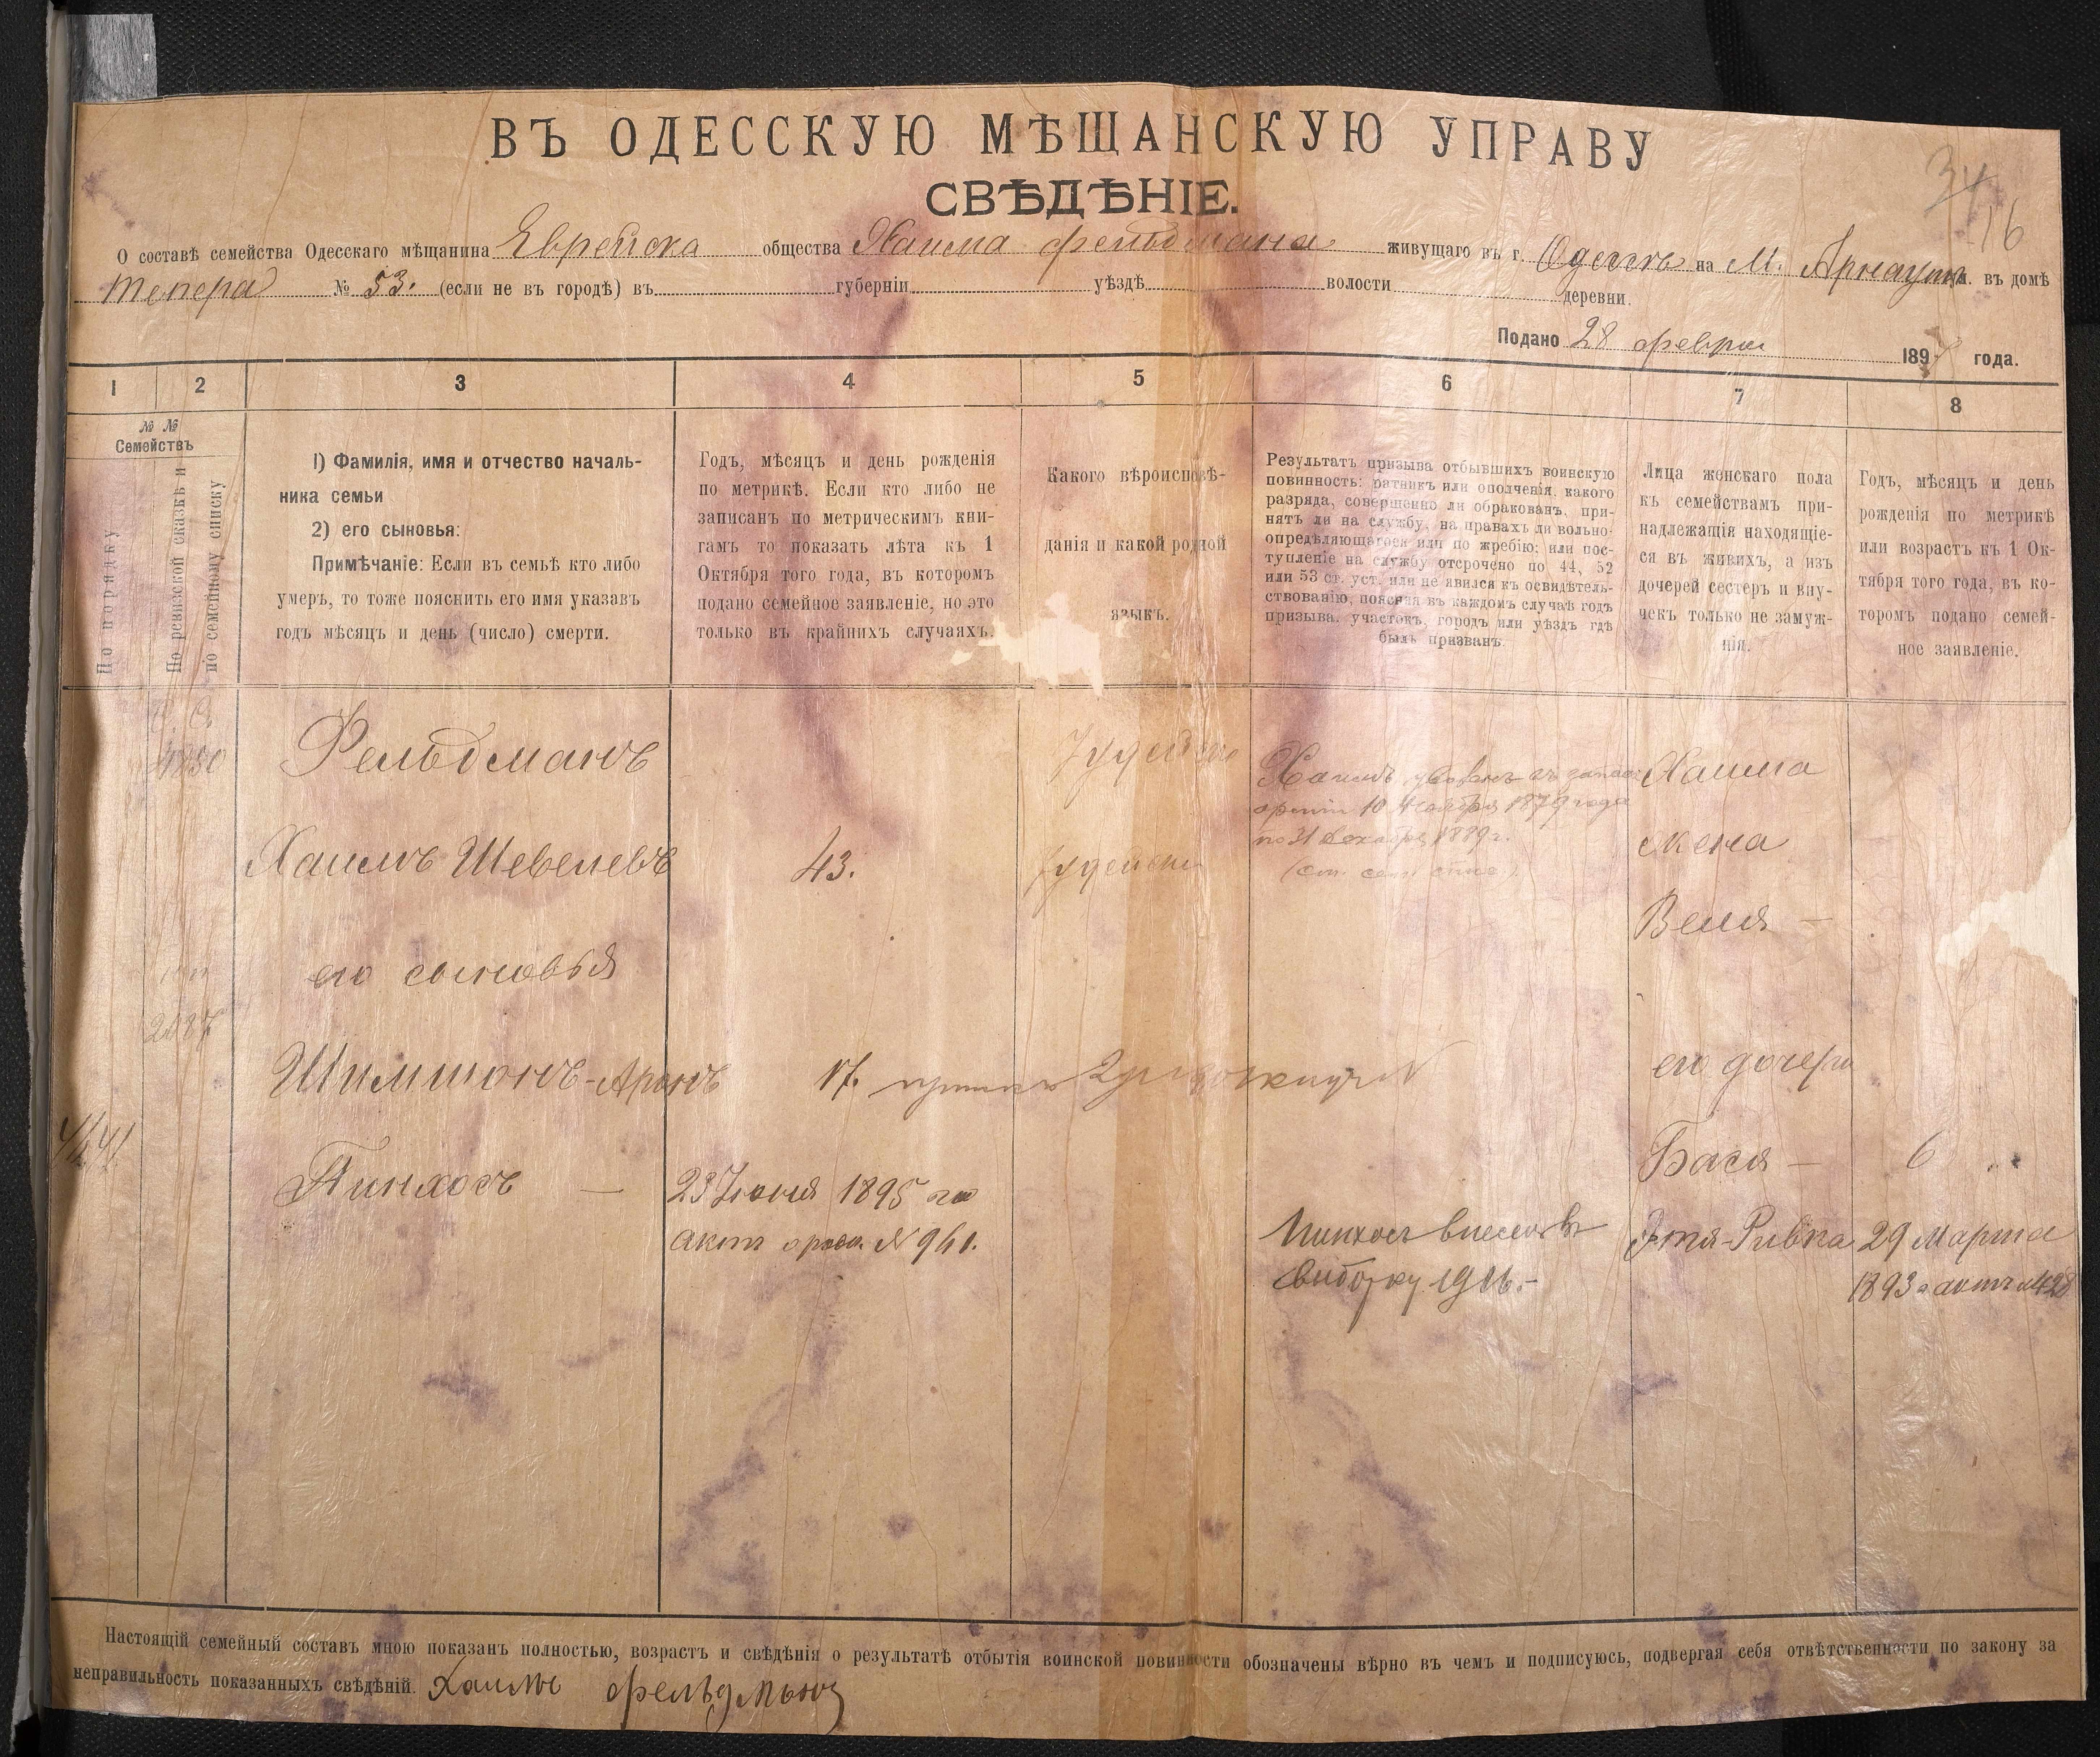 ВЪ ОДЕССКУЮ МѢЩАНСКУЮ УПРАВУ
34
СВѢДѢНІЕ.
16
О составѣ семейства Одесскаго мѣщанина Еврейска общества Хаима Фельдмана живущаго въ г. Одессѣ на М. Арнаутск ул. въ домѣ
Тепера № 53. (если не въ городѣ) въ губерніи уѣздѣ волости деревни.
Подано 28 февраля 1897 года.
1 2 3 4 5 6 7 8
№ №
Семействъ
По порядку
По ревизской сказкѣ и
по семейному списку
1) Фамилія, имя и отчество началь-
ника семьи
2) его сыновья:
Примѣчаніе: Если въ семьѣ кто либо
умеръ, то тоже пояснить его имя указавъ
годъ мѣсяцъ и день (число) смерти.
Годъ, мѣсяцъ и день рожденія
по метрикѣ. Если кто либо не
записанъ по метрическимъ кни-
гамъ то показать лѣта къ 1
Октября того года, въ которомъ
подано семейное заявленіе, но это
только въ крайнихъ случаяхъ.
Какого вѣроисповѣ-
данія и какой родной
языкъ.
Результатъ призыва отбывшихъ воинскую
повинность: ратникъ или ополченія, какого
разряда, совершенно ли обракованъ, при-
нятъ ли на службу, на правахъ ли вольно-
опредѣляющагося или по жребію; или пос-
тупленіе на службу отсрочено по 44, 52
или 53 ст. уст. или не явился къ освидѣтель-
ствованію, поясняя въ каждомъ случаѣ годъ
призыва, участокъ, городъ или уѣздъ гдѣ
былъ призванъ.
Лица женскаго пола
къ семействамъ при-
надлежащія находящіе-
ся въ живихъ, а изъ
дочерей сестеръ и вну-
чекъ только не замуж-
нія.
Годъ, мѣсяцъ и день
рожденія по метрикѣ
или возрастъ къ 1 Ок-
тября того года, въ ко-
торомъ подано семей-
ное заявленіе.
Фельдманъ
Іудейско
Хаимъ уволенъ въ запас
арміи 10 Ноября 1879 года
по 31 Декабря 1889 г.
Хаима
Хаимъ Шевелевъ 43. Іудейско
жена
Веля —
его сыновья
2087
Шимшонъ-Аронъ 17.
его дочери
Бася — 6
Пинхосъ — 23 Іюня 1895 го
актъ № 961.
Пинхос внесен в
выборку 1916.-
Этя-Ривка 29 Марта
1893 г актъ №428
Настоящій семейный составъ мною показанъ полностью, возрастъ и свѣдѣнія о результатѣ отбытія воинской повинности обозначены вѣрно въ чемъ и подписуюсь, подвергая себя отвѣтственности по закону за
неправильность показанныхъ свѣдѣній. Хаимъ Фельдманъ